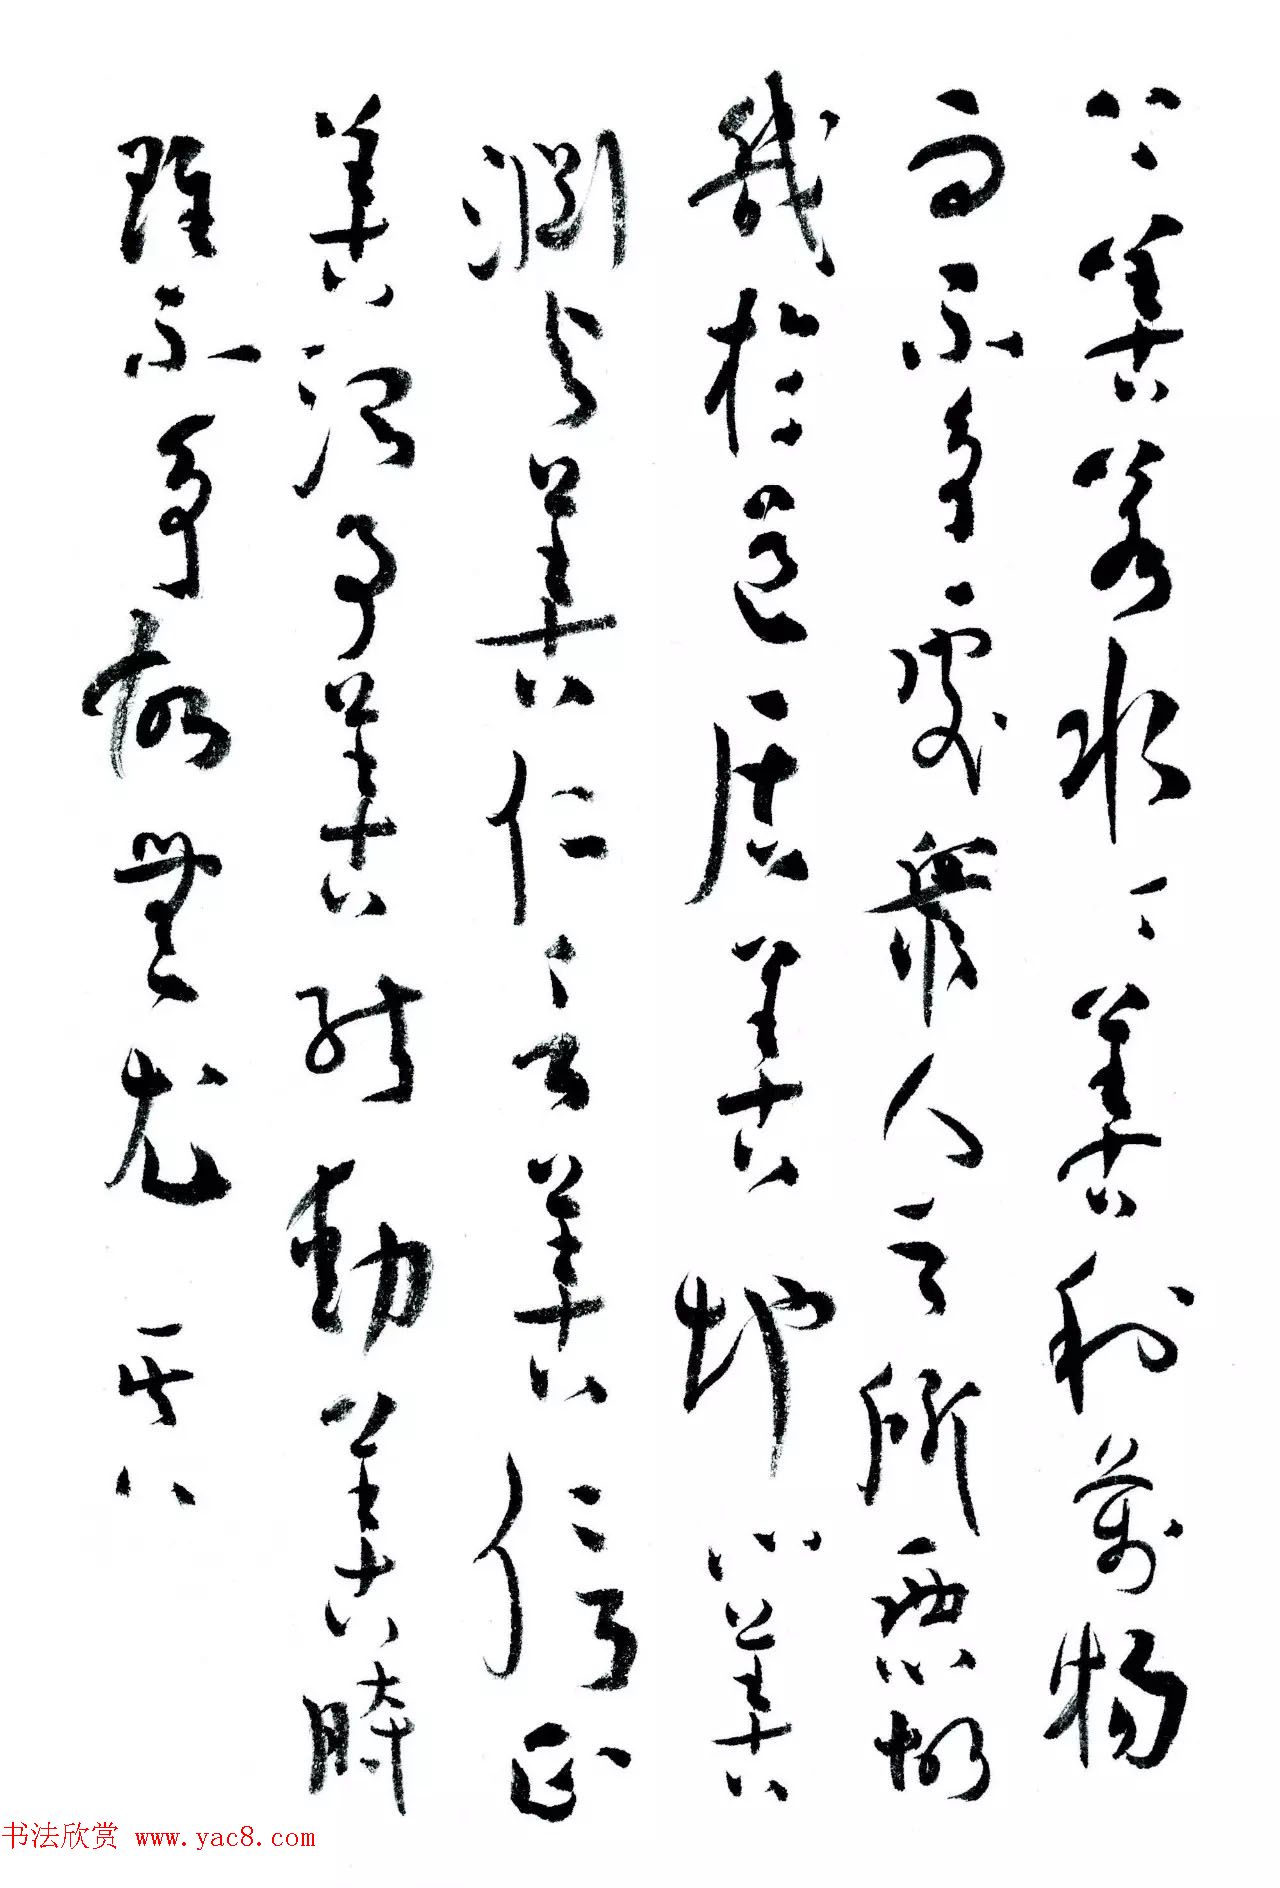 上善若水〻善利萬物
而不爭處衆人之所惡故
幾於道居善地心善
淵與善仁言善信正
善治事善能動善時
雖不爭故無尤 其八
书法欣赏 www.yac8.com